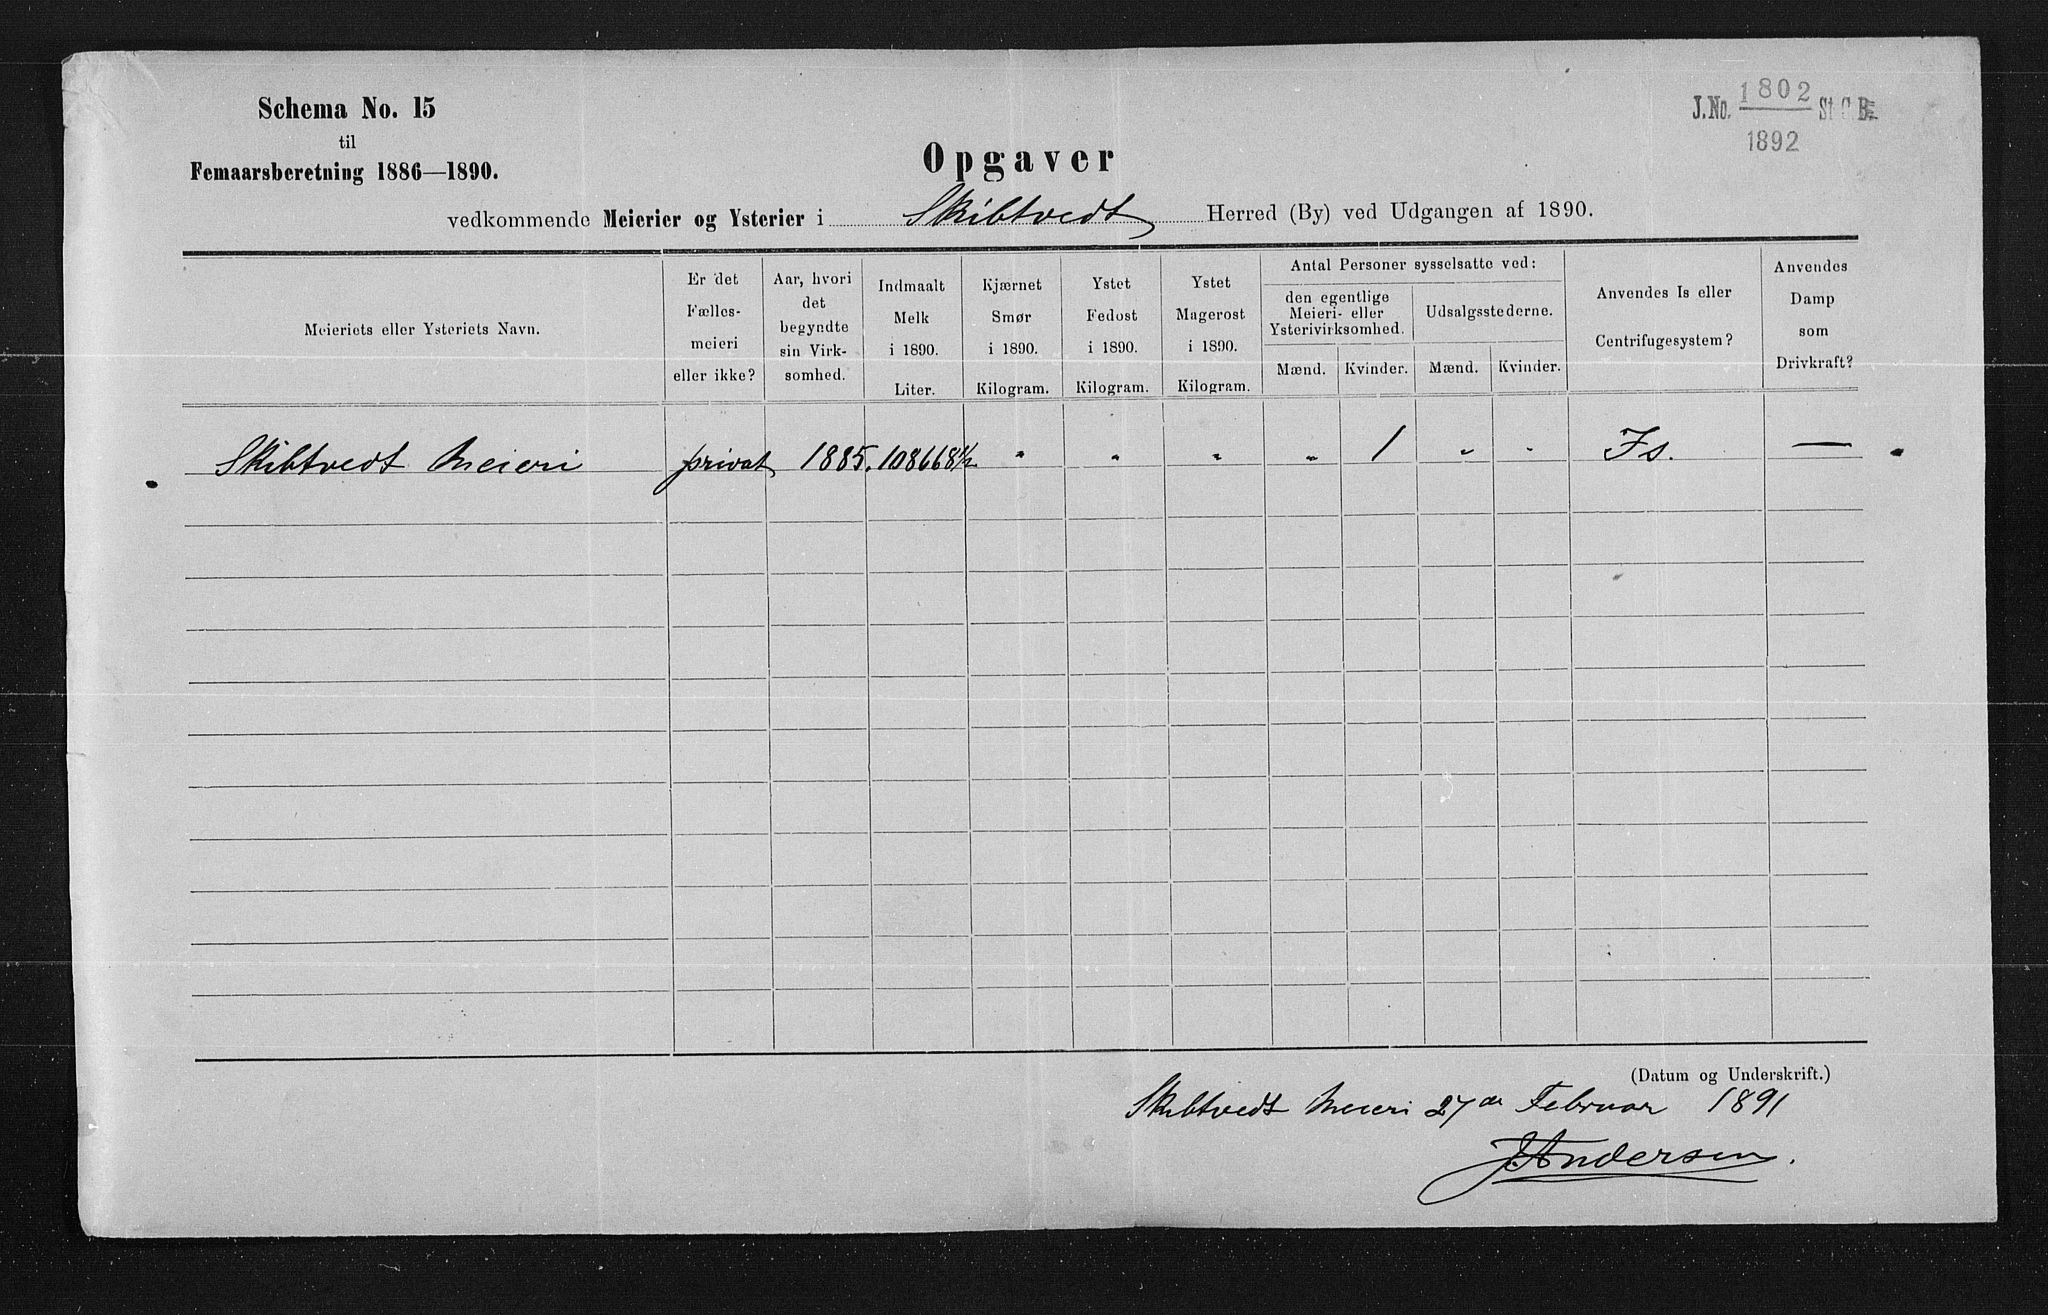 Schema No. 15
til
Femaarsberetning 1886—1890.
J. No. 1802 St C. B.
1892
Opgaver
vedkommende Meierier og Ysterier i Skibtvedt Herred (By) ved Udgangen af 1890.
Meieriets eller Ysteriets Navn.
Er det Fælles-meieri eller ikke?
Aar, hvori det begyndte sin Virk-somhed.
Indmaalt Melk i 1890. Liter.
Kjærnet Smør i 1890. Kilogram.
Ystet Fedost i 1890. Kilogram.
Ystet Magerost i 1890. Kilogram.
Antal Personer sysselsatte ved:
den egentlige Meieri- eller Ysterivirksomhed.
Mænd. Kvinder.
Udsalgsstederne.
Mænd. Kvinder.
Anvendes Is eller Centrifugesystem?
Anvendes Damp som Drivkraft?
Skibtvedt Meieri privat 1885. 108668½ " " " " 1 " " Is. —
(Datum og Underskrift.)
Skibtvedt Meieri 27de Februar 1891
J. Andersen.